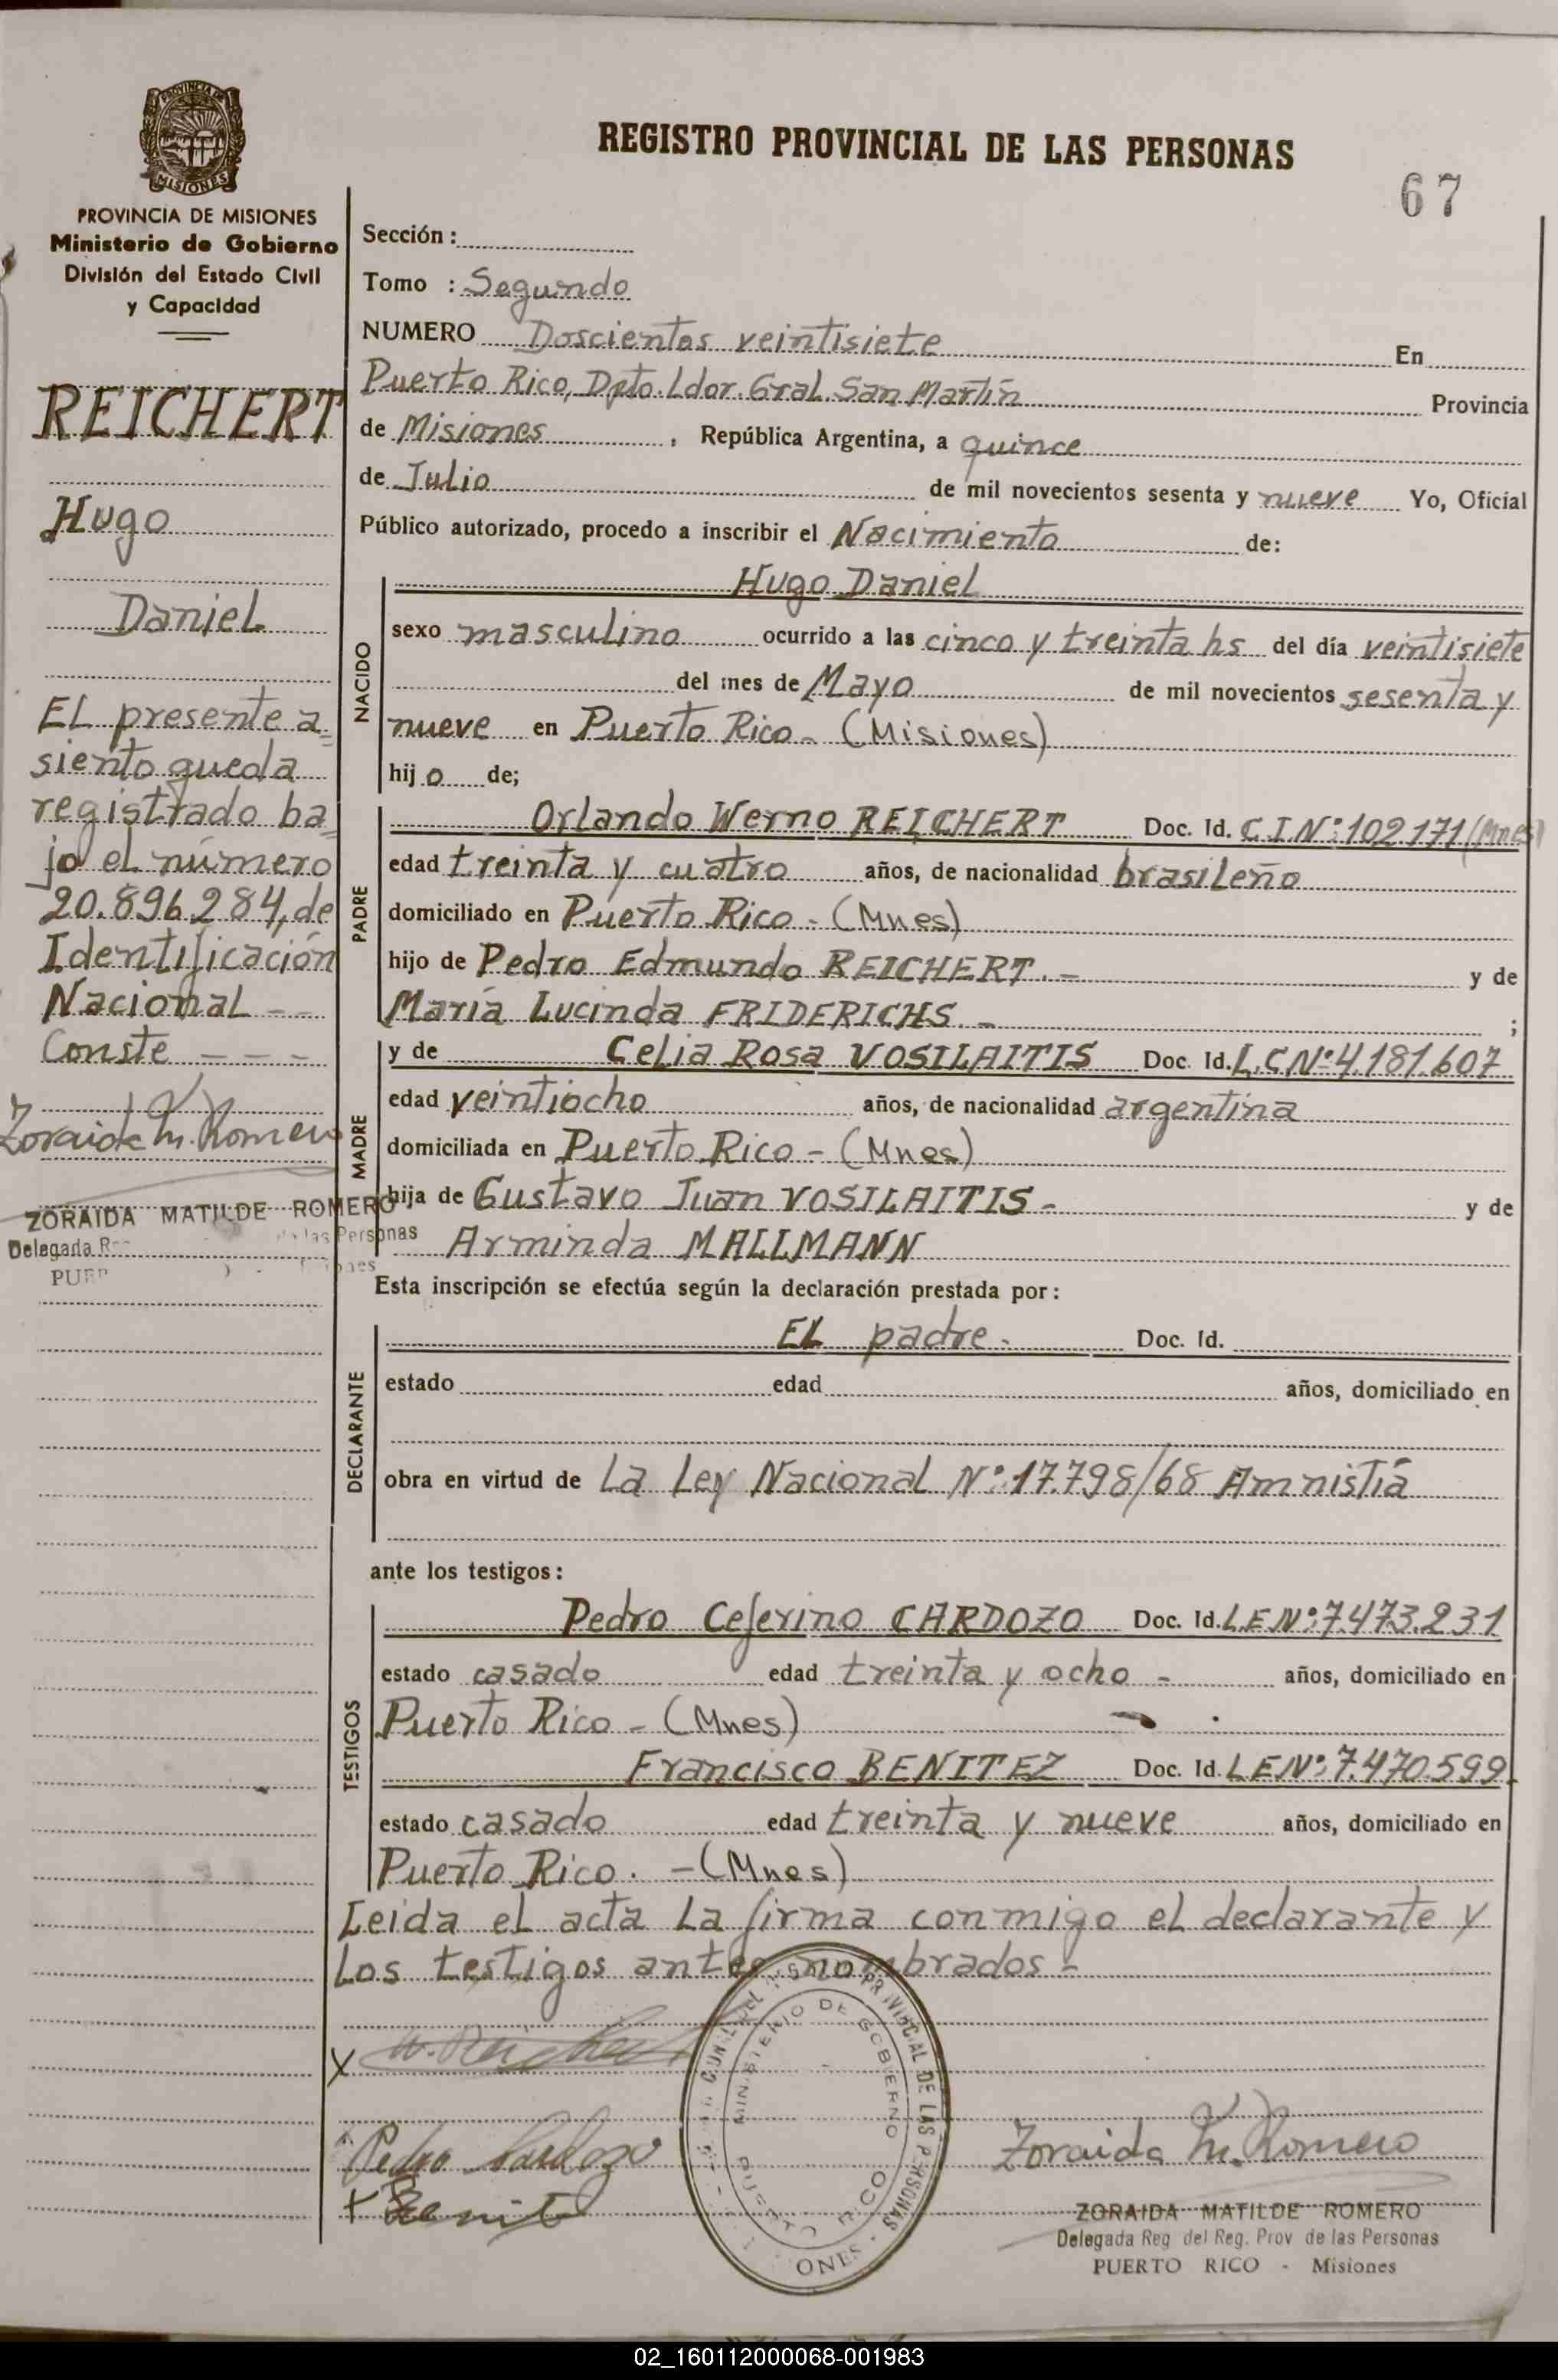 PROVINCIA DE
MISIONES
PROVINCIA DE MISIONES
Ministerio de Gobierno
División del Estado Civil
y Capacidad
REICHERT
Hugo
Daniel
El presente a=
siento queda
registrado ba=
jo el número
20.896.284, de
Identificación
Nacional - -
Conste - - -
Zoraida M. Romero
ZORAIDA MATILDE ROMERO
Delegada las Personas
REGISTRO PROVINCIAL DE LAS PERSONAS
67
Sección :
Tomo : Segundo
NUMERO Doscientos veintisiete En
Puerto Rico, Dpto. Ldor. Gral. San Martín Provincia
de Misiones , República Argentina, a quince
de Julio de mil novecientos sesenta y nueve Yo, Oficial
Público autorizado, procedo a inscribir el Nacimiento de:
NACIDO
Hugo Daniel
sexo masculino ocurrido a las cinco y treinta hs del día veintisiete
del mes de Mayo de mil novecientos sesenta y
nueve en Puerto Rico - (Misiones)
hijo de;
PADRE
Orlando Werno REICHERT Doc. Id. C.I.Nº:102.171/(Mnes)
edad treinta y cuatro años, de nacionalidad brasileño
domiciliado en Puerto Rico - (Mnes)
hijo de Pedro Edmundo REICHERT. - y de
María Lucinda FRIDERICHS - ;
MADRE
y de Celia Rosa VOSILAITIS Doc. Id. L.C Nº:4.181.607
edad veintiocho años, de nacionalidad argentina
domiciliada en Puerto Rico - (Mnes)
hija de Gustavo Juan VOSILAITIS - y de
Arminda MALLMANN
Esta inscripción se efectúa según la declaración prestada por :
DECLARANTE
El padre - Doc. Id.
estado edad años, domiciliado en
obra en virtud de La Ley Nacional Nº:17.798/68 Amnistía
ante los testigos :
TESTIGOS
Pedro Ceferino CARDOZO Doc. Id. L.E Nº:7.473.231
estado casado edad treinta y ocho - años, domiciliado en
Puerto Rico - (Mnes)
Francisco BENITEZ Doc. Id. L.E Nº:7.470.599
estado casado edad treinta y nueve años, domiciliado en
Puerto Rico. - (Mnes)
Leida el acta la firma conmigo el declarante y
los testigos antes nombrados -
x W. Reichert
Pedro Cardozo
+ Benit
PROVINCIAL DE LAS PERSONAS
MINISTERIO DE GOBIERNO
PUERTO RICO
Zoraida M. Romero
ZORAIDA MATILDE ROMERO
Delegada Reg del Reg. Prov de las Personas
PUERTO RICO - Misiones
02_160112000068-001983